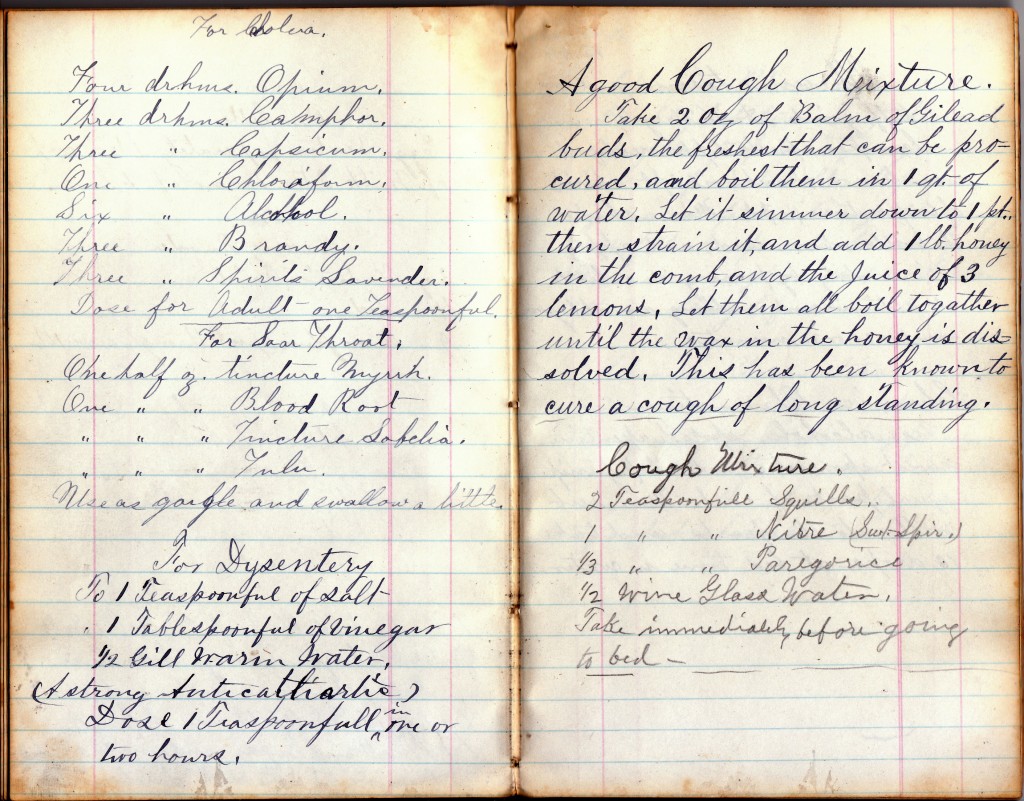 For Cholera.
Four drhms. Opium.
Three drhms. Camphor.
Three " Capsicum.
One " Chloraform.
Six " Alcohol.
Three " Brandy.
Three " Spirits Lavender.
Dose for Adult one Teaspoonful.
For Soar Throat.
One half oz. tincture Myrrh.
One " " Blood Root
" " " Tincture Lobelia.
" " " Tulu.
Use as gargle and swallow a little.
For Dysentery
To 1 Teaspoonful of salt
" 1 Tablespoonful of vinegar
1/2 Gill warm water.
(A strong Anticathartic)
Dose 1 Teaspoonfull in one or
two hours.
A good Cough Mixture.
Take 2 oz of Balm of Gilead
buds, the freshest that can be pro=
cured, and boil them in 1 qt. of
water. Let it simmer down to 1 pt.,
then strain it, and add 1 lb. honey
in the comb, and the Juice of 3
lemons. Let them all boil togather
until the wax in the honey is dis=
solved. This has been known to
cure a cough of long standing.
Cough Mixture.
2 Teaspoonfull Squills.
1 " " Nitre (Swt. Spir.)
1/3 " " Paregorice
1/2 wine Glass Water.
Take immediately before going
to bed —